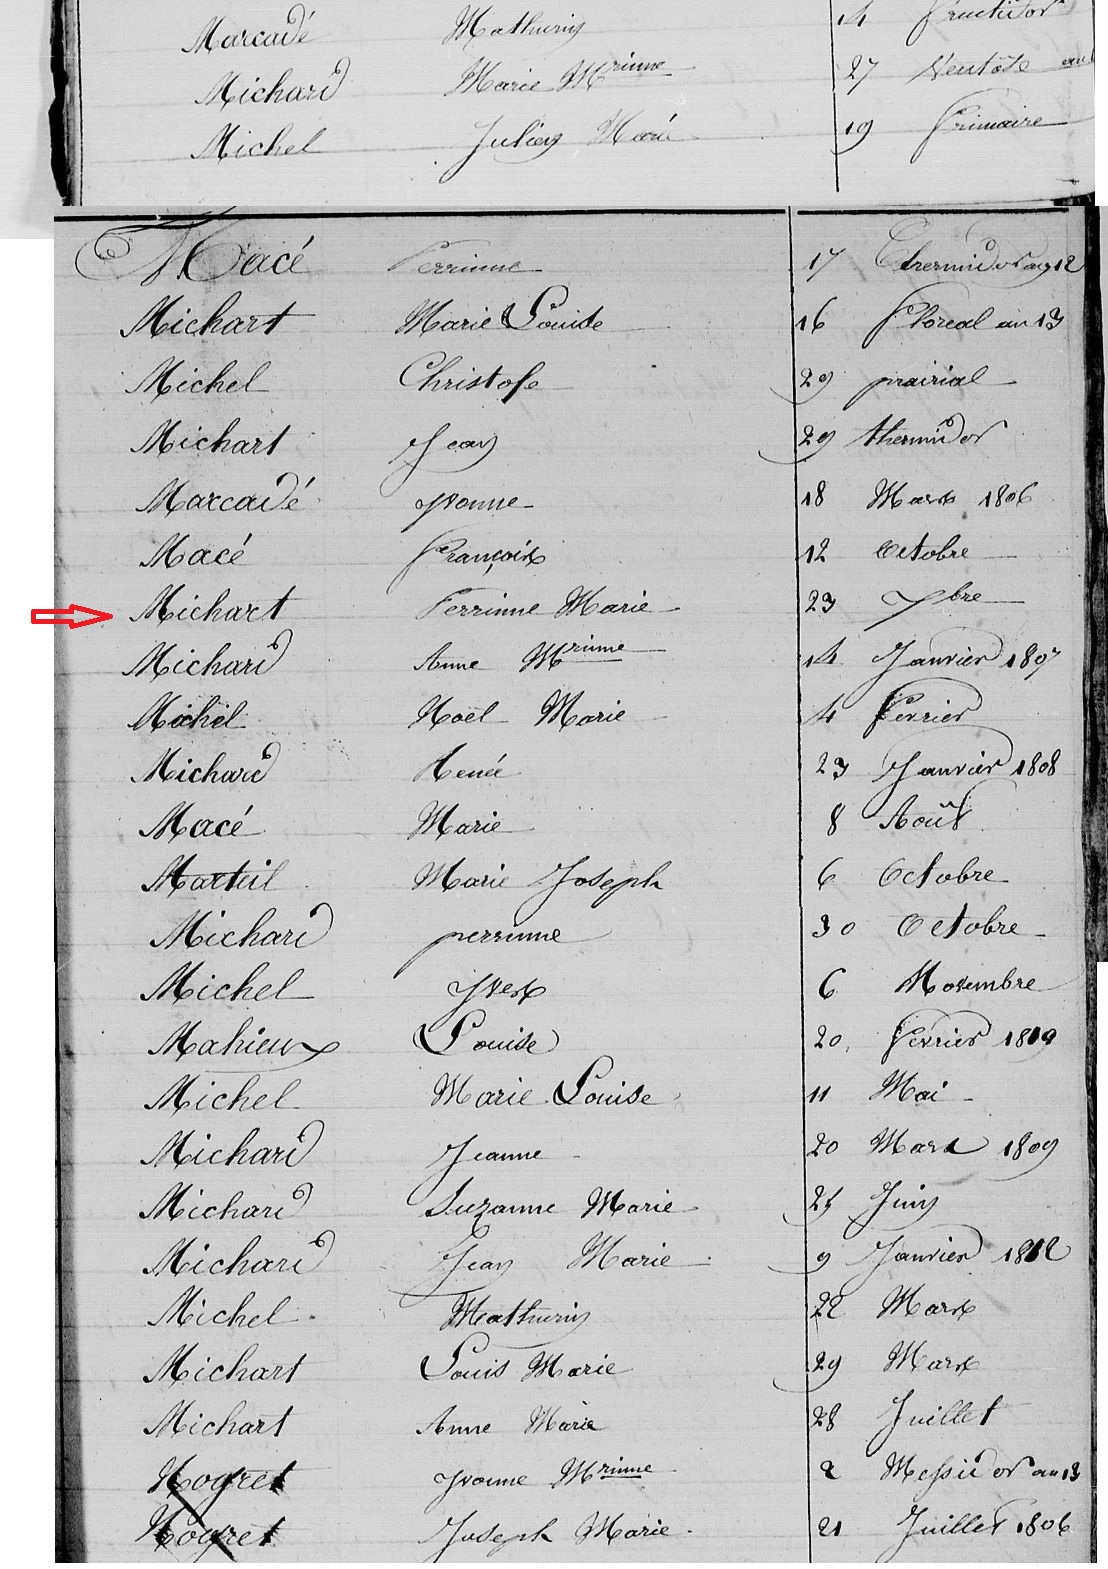 Marcadé Mathurin 14 fructidor
Michard Marie Mrinne 27 Ventôse an
Michel Julien Marie 19 frimaire
Macé Perrinne 17 Thermidor an 12
Michart Marie Louise 16 floreal an 13
Michel Christofe 29 prairial
Michart Jean 29 thermidor
Marcadé yvonne 18 Mars 1806
Macé françois 12 Octobre
Michart Perrinne Marie 23 7bre
Michard Anne Mrinne 14 Janvier 1807
Michel Noël Marie 4 fevrier
Michard Renée 23 Janvier 1808
Macé Marie 8 Août
Marteil Marie Joseph 6 Octobre
Michard perrinne 30 Octobre
Michel yves 6 Novembre
Mahieux Louise 20 fevrier 1809
Michel Marie Louise 11 Mai
Michard Jeanne 20 Mars 1809
Michard Suzanne Marie 25 Juin
Michard Jean Marie 9 Janvier 1812
Michel Mathurin 22 Mars
Michart Louis Marie 29 Mars
Michart Anne Marie 28 Juillet
Nogret yvonne Mrinne 2 Messidor an 13
Nogret Joseph Marie 21 Juillet 1806